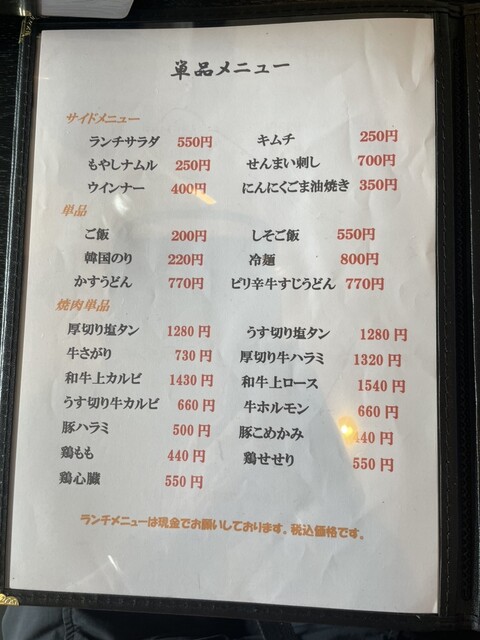 単品メニュー
サイドメニュー
ランチサラダ 550円 キムチ 250円
もやしナムル 250円 せんまい刺し 700円
ウインナー 400円 にんにくごま油焼き 350円
単品
ご飯 200円 しそご飯 550円
韓国のり 220円 冷麺 800円
かすうどん 770円 ピリ辛牛すじうどん 770円
焼肉単品
厚切り塩タン 1280円 うす切り塩タン 1280円
牛さがり 730円 厚切り牛ハラミ 1320円
和牛上カルビ 1430円 和牛上ロース 1540円
うす切り牛カルビ 660円 牛ホルモン 660円
豚ハラミ 500円 豚こめかみ 40円
鶏もも 440円 鶏せせり 550円
鶏心臓 550円
ランチメニューは現金でお願いしております。税込価格です。